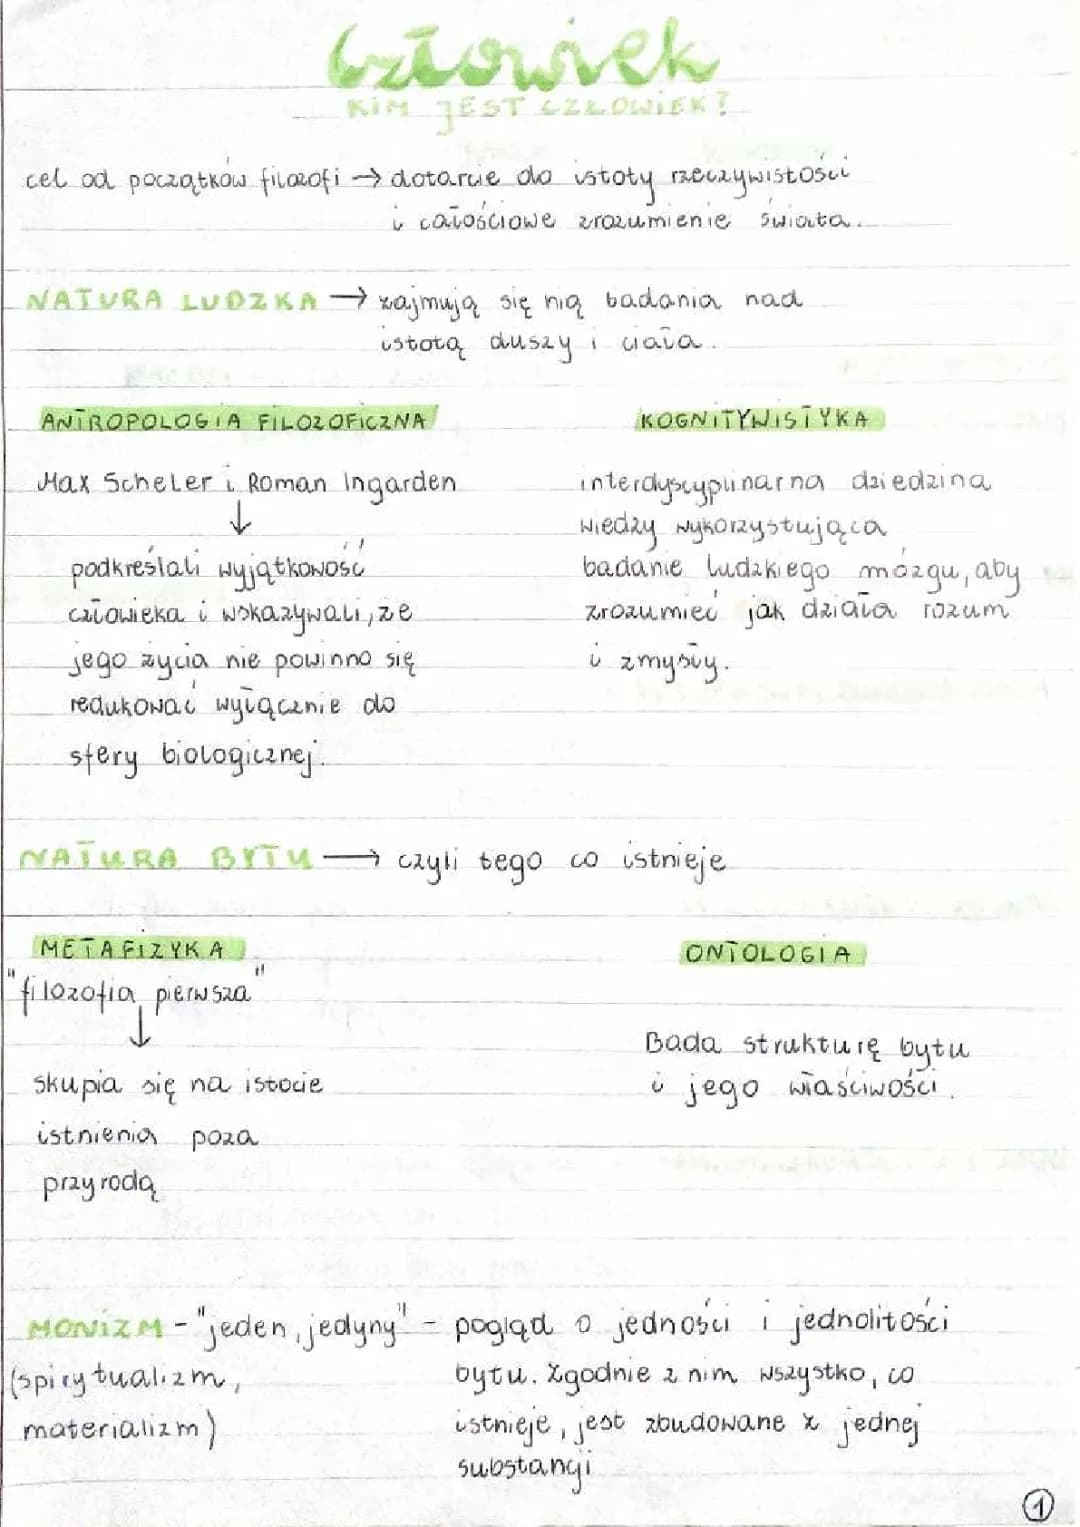 Człowiek
KIM JEST CZŁOWIEK?
cel od początków filozofi → dotarcie do istoty rzeczywistości
i całościowe zrozumienie świata.
NATURA LUDZKA → zajmują się nią badania nad
istotą duszy i ciała.
ANTROPOLOGIA FILOZOFICZNA
Max Scheler i Roman Ingarden
↓
podkreślali wyjątkowość
człowieka i wskazywali, że
jego życia nie powinno się
redukować wyłącznie do
sfery biologicznej.
KOGNITYWISTYKA
interdyscyplinarna dziedzina
wiedzy wykorzystująca
badanie ludzkiego mózgu, aby
zrozumieć jak działa rozum
i zmysły.
NATURA BYTU → czyli tego co istnieje
METAFIZYKA
"filozofia pierwsza"
↓
skupia się na istocie
istnienia poza
przyrodą
ONTOLOGIA
Bada strukturę bytu
i jego właściwości.
MONIZM - "jeden, jedyny" - pogląd o jedności i jednolitości
(spirytualizm, bytu. Zgodnie z nim wszystko, co
materializm) istnieje, jest zbudowane z jednej
substancji
1